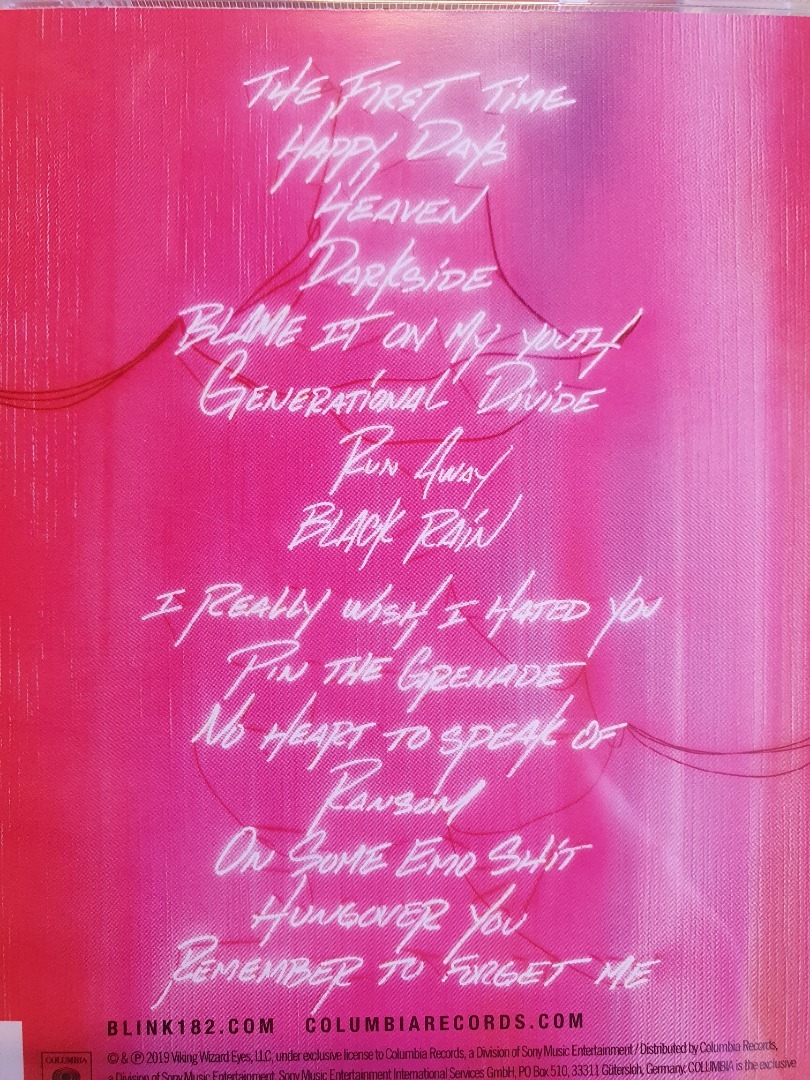 THE FIRST TIME
HAPPY DAYS
HEAVEN
DARKSIDE
BLAME IT ON MY YOUTH
GENERATIONAL DIVIDE
RUN AWAY
BLACK RAIN
I REALLY WISH I HATED YOU
PIN THE GRENADE
NO HEART TO SPEAK OF
RANSOM
ON SOME EMO SHIT
HUNGOVER YOU
REMEMBER TO FORGET ME
BLINK182.COM COLUMBIARECORDS.COM
COLUMBIA
© & ℗ 2019 Viking Wizard Eyes, LLC, under exclusive license to Columbia Records, a Division of Sony Music Entertainment / Distributed by Columbia Records,
a Division of Sony Music Entertainment. Sony Music Entertainment International Services GmbH, PO Box 510, 33311 Gütersloh, Germany. COLUMBIA is the exclusive